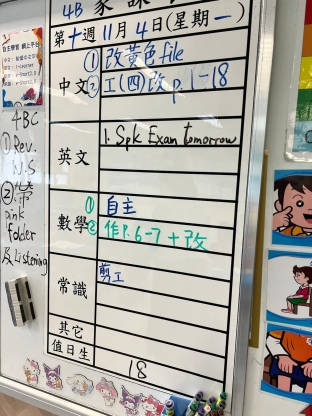 4B 家課
第十週 11月4日(星期一)
中文
① 改黃色file
② 工(四)改 p.1-18
英文
1. Spk Exam tomorrow
數學
① 自主
② 作P.6-7+改
常識
剪工
其它
值日生
18
4BC
① Rev.
N.S
② 帶
pink
folder
及Listening